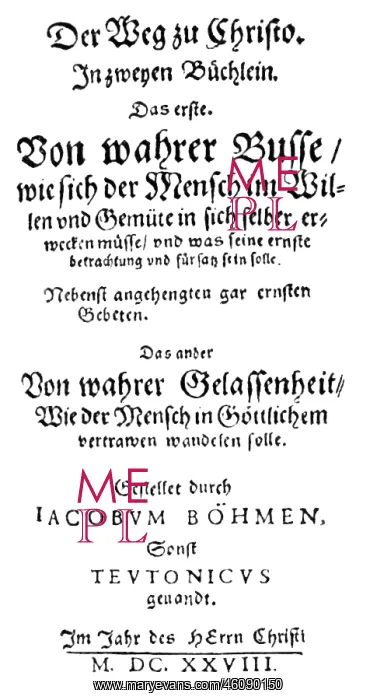 Der Weg zu Christo.
In zweyen Büchlein.
Das erste.
Von wahrer Busse /
wie sich der Mensch im Wil-
len vnd Gemüte in sich selber, er-
wecken müsse / vnd was seine ernste
betrachtung vnd fürsatz sein solle.
Nebenst angehengten gar ernsten
Gebeten.
Das ander
Von wahrer Gelassenheit /
Wie der Mensch in Göttlichem
vertrawen wandelen solle.
Gestellet durch
IACOBVM BÖHMEN,
Sonst
TEVTONICVS
genandt.
Im Jahr des HErrn Christi
M. DC. XXVIII.
ME
PL
ME
PL
www.maryevans.com/46090150